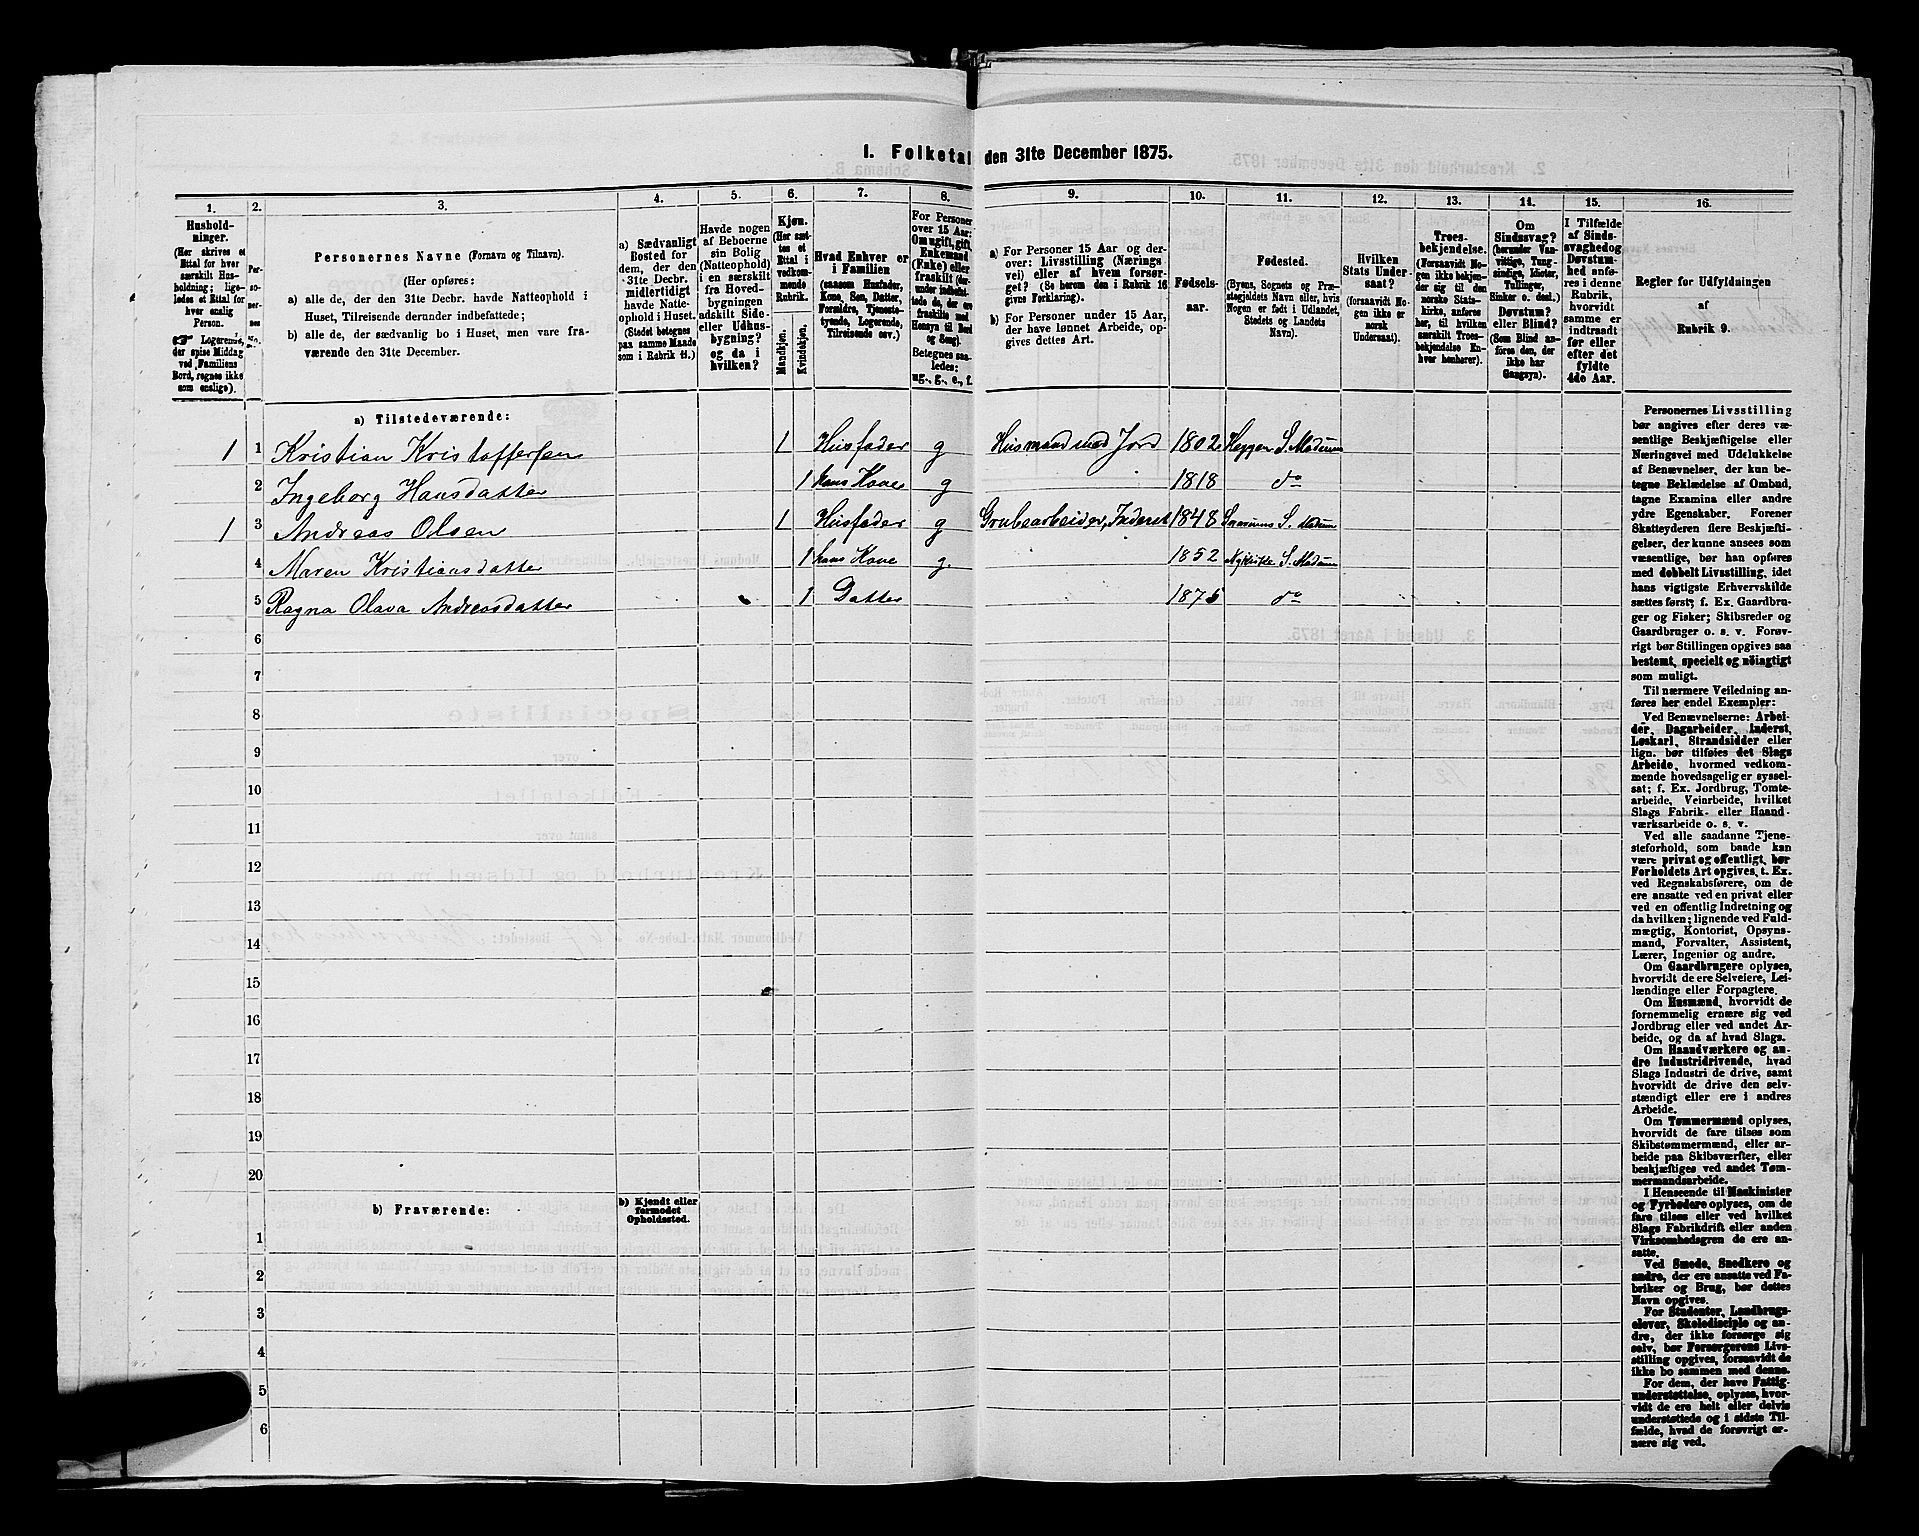 1. Folketal den 31te December 1875.
1. 2. 3. 4. 5. 6. 7. 8. 9. 10. 11. 12. 13. 14. 15. 16.
Hushold-
ninger.
(Her skrives et
Ettal for hver
særskilt Hus-
holdning; lige-
ledes et Ettal for
hver enslig
Person.
☞ Logerende,
der spise Middag
ved Familiens
Bord, regnes ikke
som enslige).
Per-
so-
ner-
nes
No.
Personernes Navne (Fornavn og Tilnavn).
(Her opføres:
a) alle de, der den 31te Decbr. havde Natteophold i
Huset, Tilreisende derunder indbefattede;
b) alle de, der sædvanlig bo i Huset, men vare fra-
værende den 31te December.
a) Sædvanligt
Bosted for
dem, der den
31te Decbr.
midlertidigt
havde Natte-
ophold i Huset.
(Stedet betegnes
paa samme Maade
som i Rubrik 11.)
Havde nogen
af Beboerne
sin Bolig
(Natteophold)
i en særskilt
fra Hoved-
bygningen
adskilt Side-
eller Udhus-
bygning?
og da i
hvilken?
Kjøn.
(Her sæt-
tes et
Ettal i
vedkom-
mende
Rubrik.
Mandkjøn.
Kvindekjøn.
Hvad Enhver er
i Familien
(saasom Husfader,
Kone, Søn, Datter,
Forældre, Tjeneste-
tyende, Logerende,
Tilreisende osv.)
For Personer
over 15 Aar:
Om ugift, gift,
Enkemand
(Enke) eller
fraskilt
Betegnes saa-
ledes:
ug., g., e., f.
a) For Personer 15 Aar og der-
over: Livsstilling (Nærings
vei) eller af hvem forsør-
get? (Se herom den i Rubrik 16
givne Forklaring).
b) For Personer under 15 Aar,
der have lønnet Arbeide, op-
gives dettes Art.
Fødsels-
aar.
Fødested.
(Byens, Sognets og Præ-
stegjeldets Navn eller, hvis
Nogen er født i Udlandet,
Stedets og Landets
Navn).
Hvilken
Stats Under-
saat?
(forsaavidt No-
gen ikke er
norsk
Undersaat).
Troes-
bekjendelse.
(Forsaavidt No-
gen ikke bekjen-
der sig til den
norske Stats-
kirke, anføres
her, til hvilken
særskilt Troes-
bekjendelse En-
hver henhører).
Om
Sindssvag?
(herunder Van-
vittige, Tung-
sindige, Idioter,
Tullinger,
Sinker o. desl.)
Døvstum?
eller Blind?
(Som Blind an-
føres den, der
ikke har
Gangsyn).
I Tilfælde
af Sinds-
svaghed og
Døvstum-
hed anfø-
res i denne
Rubrik,
hvorvidt
samme er
indtraadt
før eller
efter det
fyldte
4de Aar.
Regler for Udfyldningen
af
Rubrik 9.
a) Tilstedeværende:
1 1 Kristian Kristoffersen 1 Husfader g Husmand med Jord 1802 Heggen S. Modum
2 Ingeborg Hansdatter 1 hans Kone g 1818 do
1 3 Andreas Olsen 1 Husfader g Grubearbeider, Inderst 1848 Snarums S. Modum
4 Maren Kristiansdatter 1 hans Kone g. 1852 Nykirke S. Modum
5 Ragna Olava Andreasdatter 1 Datter 1875 do
6
7
8
9
10
11
12
13
14
15
16
17
18
19
20
b) Fraværende:
b) Kjendt eller
formodet
Opholdssted.
1
2
3
4
5
6
Personernes Livsstilling
bør angives efter deres væ-
sentlige Beskjæftigelse eller
Næringsvei med Udelukkelse
af Benævnelser, der kun be-
tegne Beklædelse af Ombud,
tagne Examina eller andre
ydre Egenskaber. Forener
Skatteyderen flere Beskjæfti-
gelser, der kunne ansees som
væsentlige, bør han opføres
med dobbelt Livsstilling, idet
hans vigtigste Erhvervskilde
sættes først; f. Ex. Gaardbru-
ger og Fisker; Skibsreder og
Gaardbruger o. s. v. Forøv-
rigt bør Stillingen opgives saa
bestemt, specielt og nöiagtigt
som muligt.
Til nærmere Veiledning an-
føres her endel Exempler:
Ved Benævnelserne: Arbei-
der, Dagarbeider, Inderst,
Løskarl, Strandsidder eller
lign. bør tilføies det Slags
Arbeide, hvormed vedkom-
mende hovedsagelig er syssel-
sat; f. Ex. Jordbrug, Tomte-
arbeide, Veiarbeide, hvilket
Slags Fabrik- eller Haand-
værksarbeide o. s. v.
Ved alle saadanne Tjene-
steforhold, som baade kan
være privat og offentligt, bør
Forholdets Art opgives, t. Ex.
ved Regnskabsførere, om de
ere ansatte ved en privat eller
ved en offentlig Indretning og
da hvilken; lignende ved Fuld-
mægtig, Kontorist, Opsyns-
mand, Forvalter, Assistent,
Lærer, Ingeniør og andre.
Om Gaardbrugere oplyses,
hvorvidt de ere Selveiere, Lei-
lændinge eller Forpagtere.
Om Husmænd, hvorvidt de
fornemmelig ernære sig ved
Jordbrug eller ved andet Ar-
beide, og da af hvad Slags.
Om Haandværkere og an-
dre Industridrivende, hvad
Slags Industri de drive, samt
hvorvidt de drive den selv-
stændigt eller ere i andres
Arbeide.
Om Tømmermænd oplyses,
hvorvidt de fare tilsøs som
Skibstømmermænd, eller ar-
beide paa Skibsværfter, eller
beskjæftiges ved andet Tøm-
mermandsarbeide.
I Henseende til Maskinister
og Fyrbødere oplyses, om de
fare tilsøs eller ved hvilket
Slags Fabrikdrift eller anden
Virksomhedsgren de ere an-
satte.
Ved Smede, Snedkere og
andre, der ere ansatte ved Fa-
briker og Brug, bør dettes
Navn opgives.
For Studenter, Landbrugs-
elever, Skoledisciple og an-
dre, der ikke forsørge sig
selv, bør Forsørgerens Livs-
stilling opgives, forsaavidt de
ikke bo sammen med denne.
For dem, der have Fattig-
understøttelse, oplyses, hvor-
vidt de ere helt eller delvis
understøttede og i sidste Til-
fælde, hvad de forøvrigt er-
nære sig ved.